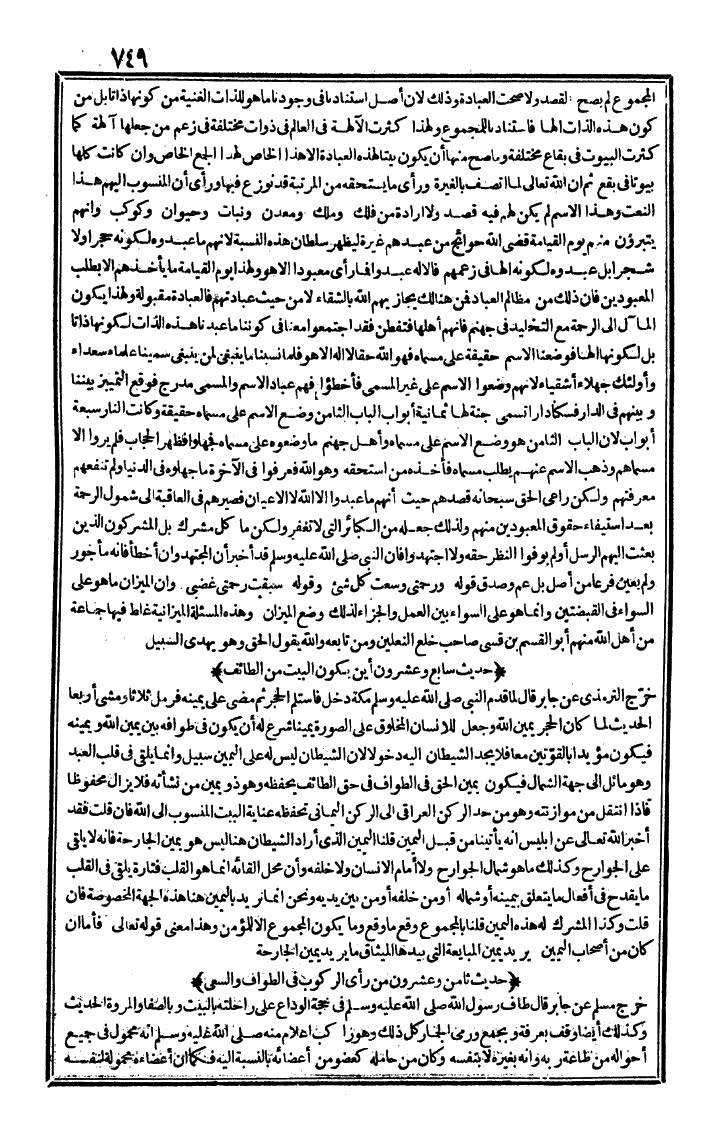 ٧٤٩
المجموع لم يصح القصد ولا صحت العبادة وذلك لان أصل استنادنا فى وجودنا ما هو للذات الغنية من كونها ذاتا بل من
كون هذه الذات الها فاستنادنا للمجموع ولهذا كثرت الآلهة فى العالم فى ذوات مختلفة فى زعم من جعلها آلهة كما
كثرت البيوت فى بقاع مختلفة وما صح منها أن يكون بيتا لهذه العبادة الا هذا الخاص لهذا الجمع الخاص وان كانت كلها
بيوتا فى بقع ثم ان الله تعالى لما اتصف بالغيرة ورأى ما يستحقه من المرتبة قد نوزع فيها ورأى أن المنسوب اليهم هذا
النعت وهذا الاسم لم يكن لهم فيه قصد ولا ارادة من فلك وملك ومعدن ونبات وحيوان وكوكب وانهم
يتبرؤن منهم يوم القيامة قضى الله حوائج من عبدهم غيرة ليظهر سلطان هذه النسبة لانهم ما عبدوه لكونه حجرا ولا
شجرا بل عبدوه لكونه الها فى زعمهم فالاله عبدوا فما رأى معبودا الا هو ولهذا يوم القيامة ما يأخذهم الا بطلب
المعبودين فان ذلك من مظالم العباد فمن هنالك يجازيهم الله بالشقاء لا من حيث عبادتهم فالعبادة مقبولة ولهذا يكون
المآل الى الرحمة مع التخليد فى جهنم فانهم أهلها فتفطن فقد اجتمعوا معنا فى كوننا ما عبدنا هذه الذات لكونها ذاتا
بل لكونها الها فوضعنا الاسم حقيقة على مسماه فهو الله حقا لا اله الا هو فلما نسبنا ما ينبغى لمن ينبغى سمينا علماء سعداء
وأولئك جهلاء أشقياء لانهم وضعوا الاسم على غير المسمى فأخطؤا فهم عباد الاسم والمسمى مدرج فوقع التمييز بيننا
وبينهم فى الدار فسكنا دارا تسمى جنة لها ثمانية أبواب الباب الثامن وضع الاسم على مسماه حقيقة وكانت النار سبعة
أبواب لان الباب الثامن هو وضع الاسم على مسماه وأهل جهنم ما وضعوه على مسماه فجهلوا فظهر الحجاب فلم يروا الا
مسماهم وذهب الاسم عنهم يطلب مسماه فأخذه من استحقه وهو الله فعرفوا فى الآخرة ما جهلوه فى الدنيا ولم تنفعهم
معرفتهم ولكن راعى الحق سبحانه قصدهم حيث أنهم ما عبدوا الا الله لا الاعيان فصيرهم فى العاقبة الى شمول الرحمة
بعد استيفاء حقوق المعبودين منهم ولذلك جعله من الكبائر التى لا تغفر ولكن ما كل مشرك بل المشركون الذين
بعثت اليهم الرسل أو لم يوفوا النظر حقه ولا اجتهدوا فان النبى صلى الله عليه وسلم قد أخبر أن المجتهد وان أخطأ فانه مأجور
ولم يعين فرعا من أصل بل عم وصدق قوله ورحمتى وسعت كل شئ وقوله سبقت رحمتى غضبى وان الميزان ما هو على
السواء فى القبضتين وانما هو على السواء بين العمل والجزاء لذلك وضع الميزان وهذه المسئلة الميزانية غلط فيها جماعة
من أهل الله منهم أبو القاسم بن قسى صاحب خلع النعلين ومن تابعه والله يقول الحق وهو يهدى السبيل
﴿حديث سابع وعشرون أين يكون البيت من الطائف﴾
خرّج الترمذى عن جابر قال لما قدم النبى صلى الله عليه وسلم مكة دخل فاستلم الحجر ثم مضى على يمينه فرمل ثلاثا ومشى أربعا
الحديث لما كان الحجر يمين الله وجعل للانسان المخلوق على الصورة يمينا شرع له أن يكون فى طوافه بين يمين الله ويمينه
فيكون مؤيدا بالقوّتين معا فلا يجد الشيطان اليه دخولا لان الشيطان ليس له على اليمين سبيل وانما يلقى فى قلب العبد
وهو مائل الى جهة الشمال فيكون يمين الحق فى الطواف فى حق الطائف يحفظه وهو ذو يمين من نشأته فلا يزال محفوظا
فاذا انتقل من موازنته وهو من حد الركن العراقى الى الركن اليمانى تحفظه عناية البيت المنسوب الى الله فان قلت فقد
أخبر الله تعالى عن ابليس انه يأتينا من قبل اليمين قلنا اليمين الذى أراد الشيطان هنا ليس هو يمين الجارحة فانه لا يلقى
على الجوارح وكذلك ما هو شمال الجوارح ولا أمام الانسان ولا خلفه وأن محل القائه انما هو القلب فتارة يلقى فى القلب
ما يقدح فى أفعال ما يتعلق بيمينه أو شماله أو من خلفه أو من بين يديه ونحن انما نريد باليمين هنا هذه الجهة المخصوصة فان
قلت وكذا المشرك له هذه اليمين قلنا بالمجموع وقع ما وقع وما يكون المجموع الا للمؤمن وهذا معنى قوله تعالى فأما ان
كان من أصحاب اليمين يريد يمين المبايعة التى بيدها الميثاق ما يريد يمين الجارحة
﴿حديث ثامن وعشرون من رأى الركوب فى الطواف والسعى﴾
خرج مسلم عن جابر قال طاف رسول الله صلى الله عليه وسلم فى حجة الوداع على راحلته بالبيت وبالصفا والمروة الحديث
وكذلك أيضا وقف بعرفة وبجمع ورمى الجمار كل ذلك وهو راكب اعلام منه صلى الله عليه وسلم انه محمول فى جميع
أحواله من طاعة ربه وانه بغيره لا بنفسه وكان من حامله كعضو من أعضائه بالنسبة اليه فكما ان أعضاءه محمولة لنفسه